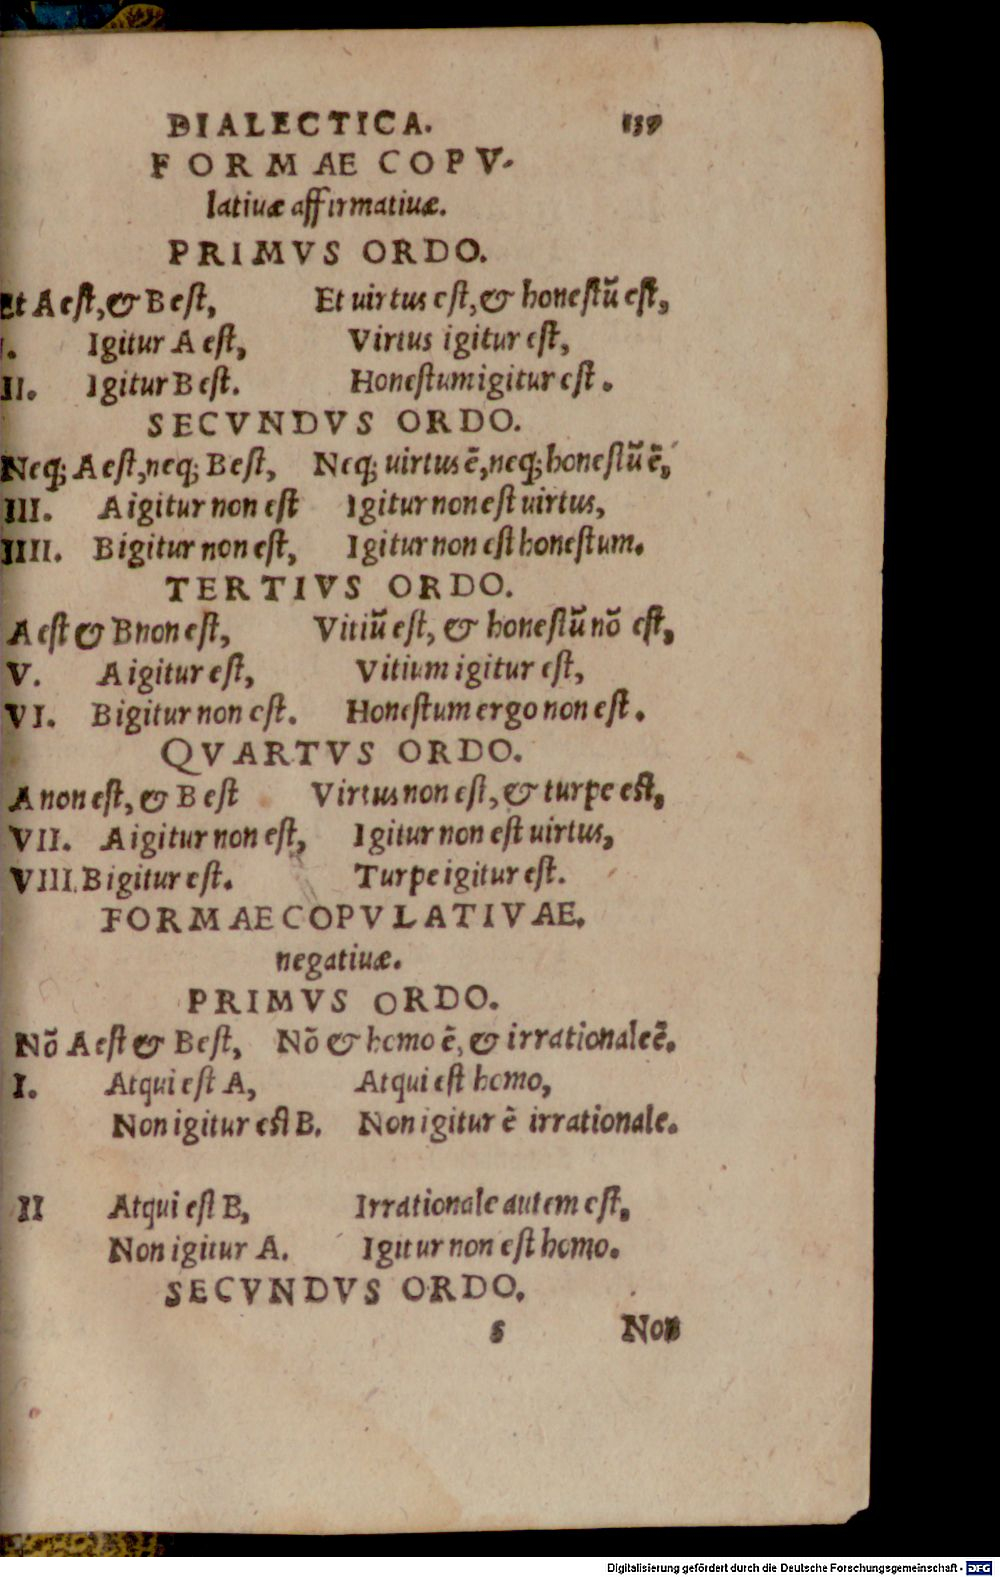 DIALECTICA. 139
FORMAE COPV-
latiuæ affirmatiuæ.
PRIMVS ORDO.
Et A est, & B est, Et uirtus est, & honestũ est,
I. Igitur A est, Virtus igitur est,
II. Igitur B est. Honestum igitur est.
SECVNDVS ORDO.
Neq; A est, neq; B est, Neq; uirtus ẽ, neq; honestũ ẽ,
III. A igitur non est Igitur non est uirtus,
IIII. B igitur non est, Igitur non est honestum.
TERTIVS ORDO.
A est & B non est, Vitiũ est, & honestũ nõ est,
V. A igitur est, Vitium igitur est,
VI. B igitur non est. Honestum ergo non est.
QVARTVS ORDO.
A non est, & B est Virtus non est, & turpe est,
VII. A igitur non est, Igitur non est uirtus,
VIII. B igitur est. Turpe igitur est.
FORMAE COPVLATIVAE.
negatiuæ.
PRIMVS ORDO.
Nõ A est & B est, Nõ & homo ẽ, & irrationale ẽ.
I. Atqui est A, Atqui est homo,
Non igitur est B. Non igitur ẽ irrationale.
II Atqui est B, Irrationale autem est,
Non igitur A. Igitur non est homo.
SECVNDVS ORDO.
s Non
Digitalisierung gefördert durch die Deutsche Forschungsgemeinschaft - DFG